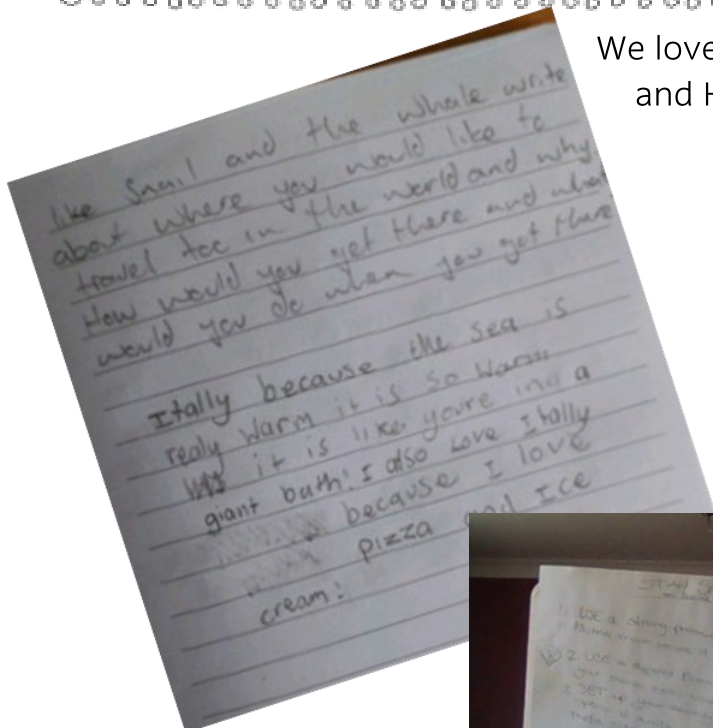 We love
and H
like Snail and the whale write
about where you would like to
travel too in the world and why
How would you get there and what
would you do when you get there
Itally because the sea is
realy warm it is so warm
it is like youre in a
giant bath! I also Love Itally
because I love
pizza and Ice
cream!
1. USE a strong
2. USE a
3. SET up your